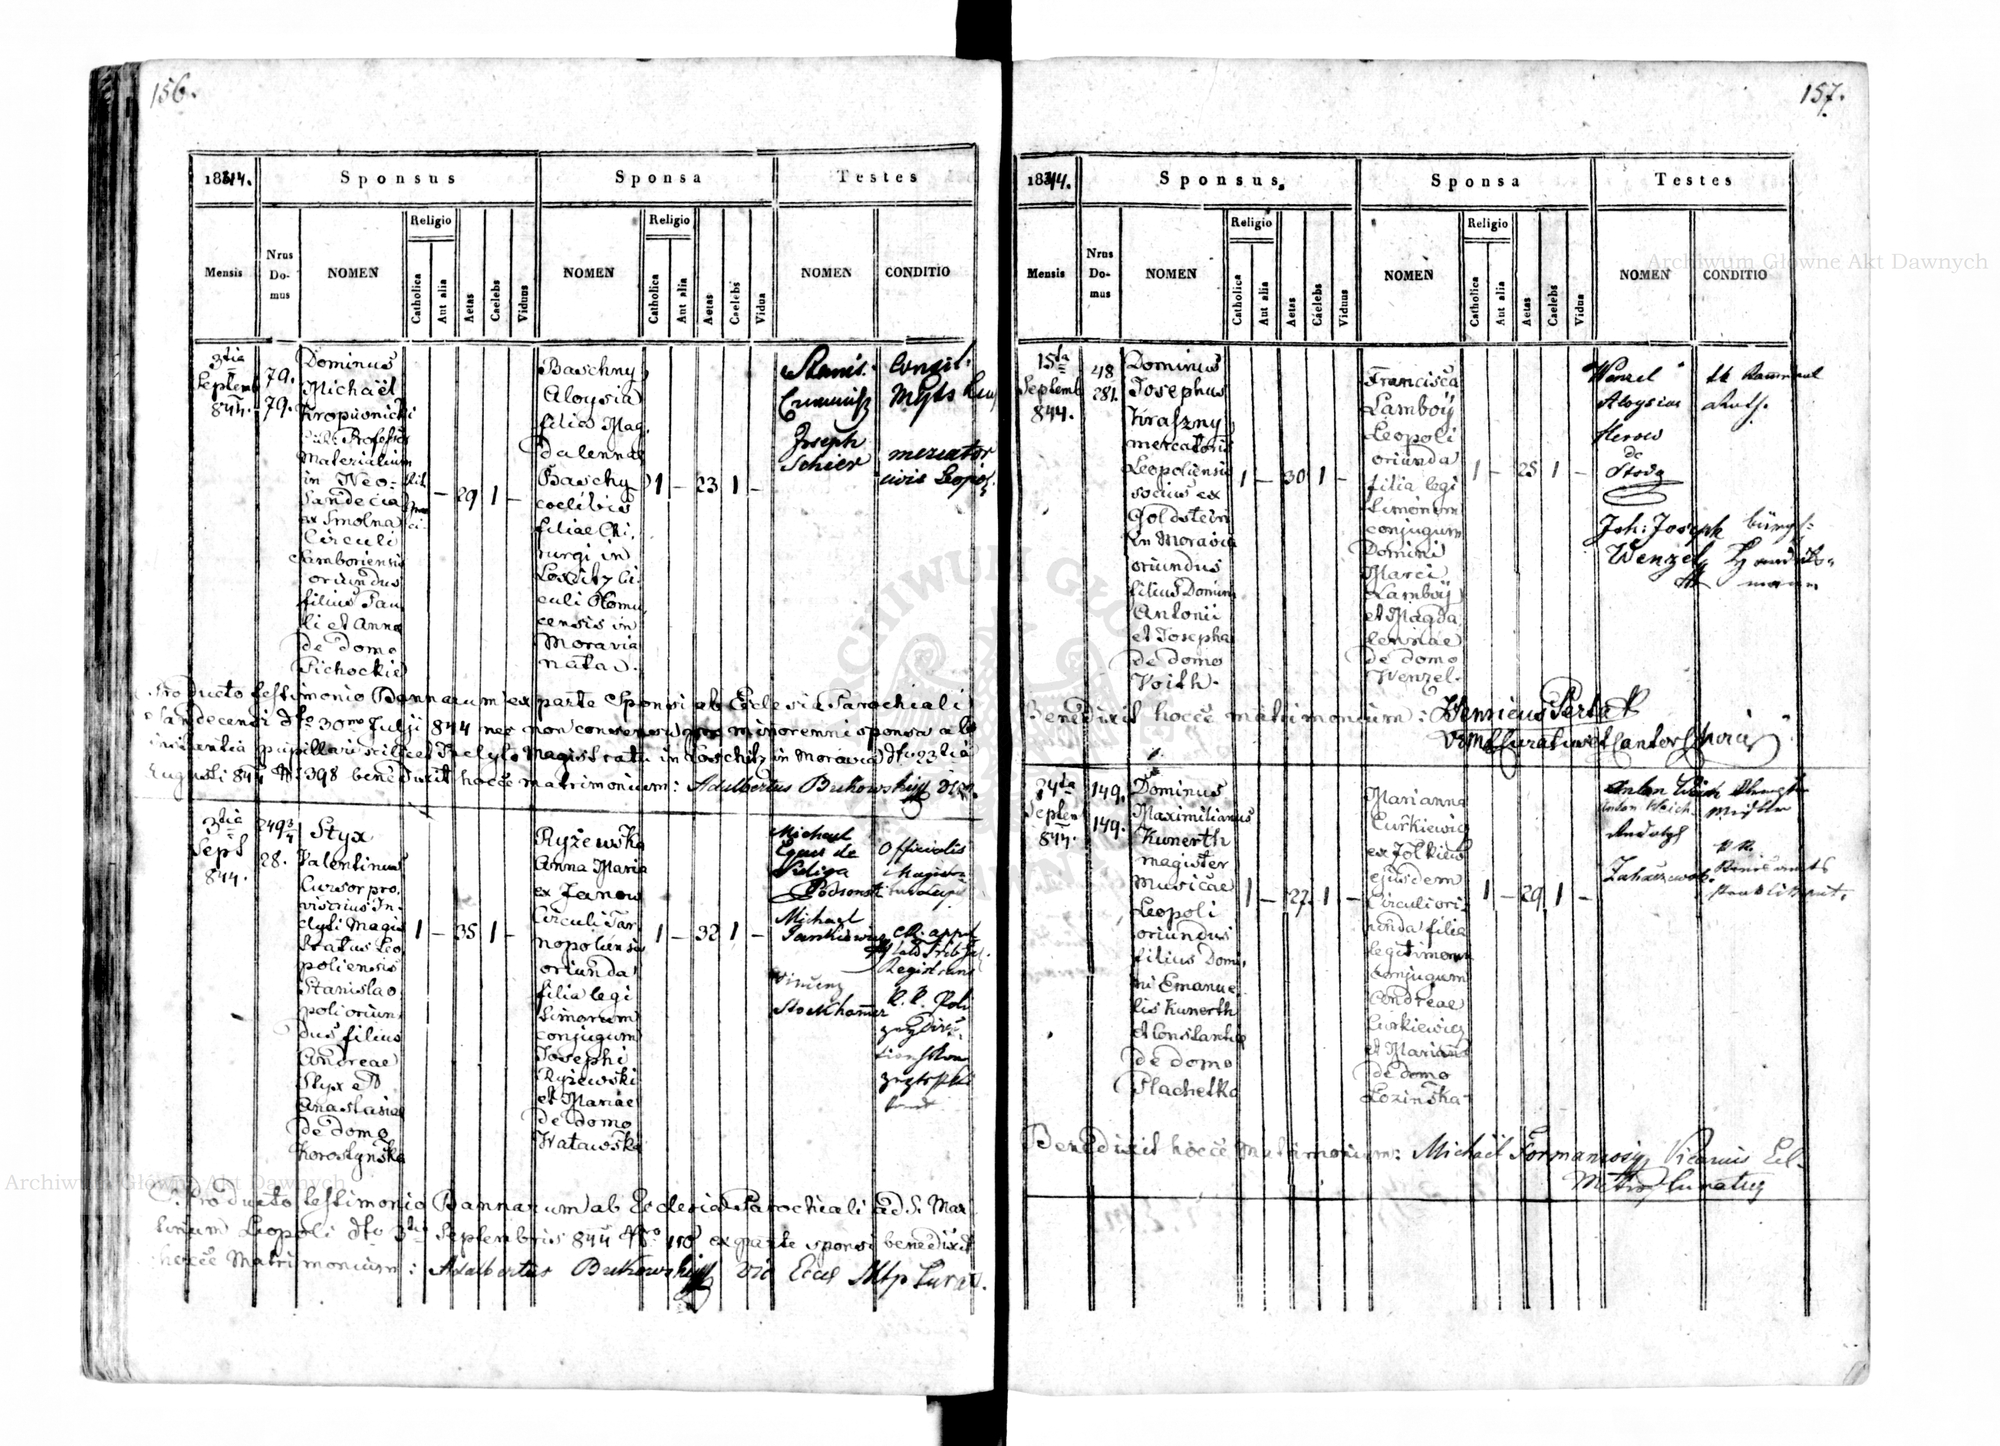 156.
1844.
Sponsus
Sponsa
Testes
Mensis
Nrus Do-
mus
NOMEN
Religio
Catholica
Aut alia
Aetas
Caelebs
Viduus
NOMEN
Religio
Catholica
Aut alia
Aetas
Caelebs
Vidua
NOMEN
CONDITIO
3tia
Septemb
844.
79.
79.
Dominus
Michaël
Kropiwnicki
Professor
Materialium
in Neo-
Sandecia
ex Smolna
Circuli
Samboriensis
oriundus
filius Pau
li et Anna
de domo
Cichockie
29
1
Baschny
Aloysia
filia Mag,
dalenna
Baschy
coelibis
filiae Chi,
rurgi in
Loschitz Ci
culi Olomu
censis in
Moravia
nata.
1
23
1
Stanis.
Consil.
Joseph
Schier
mercator
civis Leopol.
Producto testimonio Bannarum ex parte Sponsi ab Ecclesia Parochiali
Sandecensi dto 30mo Julji 844 nec non consensu quo minorenni sponsa a lo
Pupillari scilicet Inclyto Magistratu in Loschitz in Moravia dto 23tia
Augusti 844 N: 398 benedixit hocce matrimonium: Adalbertus Bukowski
3tia
Sept
844.
249 3/4
28.
Styx
Valentinus
Cursor pro,
visorius In-
clyti Magis
tratus Leo
poliensis
Stanislao
poli oriun
dus filius
Andreae
Styx et
Anastasia
de domo
Korostynska
1
35
1
Ryżewska
Anna Maria
ex Janow
Circuli Tar
nopoliensis
oriunda
filia legi
timorum
conjugum
Josephi
Ryżewski
et Mariae
de domo
Watawska
1
32
1
Michael
Eques de
Officialis
Michael
Registrans
Vincenz
Stockhamer
Producto testimonio Bannarum ab Ecclesia Parochiali ad S. Mar
tinum Leopoli dto 3tia Septembris 844 Nro 118 ex parte sponsi benedixit
hocce Matrimonium: Adalbertus Bukowski Vic Eccl Mtp Curat.
157.
1844.
Sponsus
Sponsa
Testes
Mensis
Nrus Do-
mus
NOMEN
Religio
Catholica
Aut alia
Aetas
Caelebs
Viduus
NOMEN
Religio
Catholica
Aut alia
Aetas
Caelebs
Vidua
NOMEN
CONDITIO
15ta
Septemb
844.
48
281.
Dominus
Josephus
Kraszny
mercatoris
Leopoliensis
socius ex
Goldstein
in Moravia
oriundus
filius Domini
Antonii
et Josepha
de domo
Voith.
1
30
1
Francisca
Lamboÿ
Leopoli
oriunda
filia legi
timorum
conjugum
Domini
Marci
Lamboÿ
et Magda
lennae
de domo
Wenzel.
1
25
1
Wenzel
Aloysius
Joh: Joseph
Wenzel
bürgl:
Benedixit hocce matrimonium: Henricus
24ta
Septem
844.
149.
149.
Dominus
Maximilianus
Kunerth
magister
Musicae
Leopoli
oriundus
filius Domi,
ni Emanue
lis Kunerth
et Constantia
de domo
Plachetka
1
27.
1
Marianna
Curkiewicz
ex Żołkiew
ejusdem
Circuli ori,
unda filia
legitimorum
conjugum
Andreae
Curkiewicz
et Marianna
de domo
Łozińska
1
29
1
Anton Weich
Anton Weich
K. K.
Benedixit hocce matrimonium: Michaël Formaniosy Vicarius Ecl.
Archiwum Główne Akt Dawnych
Archiwum Główne Akt Dawnych
ARCHIWUM GŁÓWNE